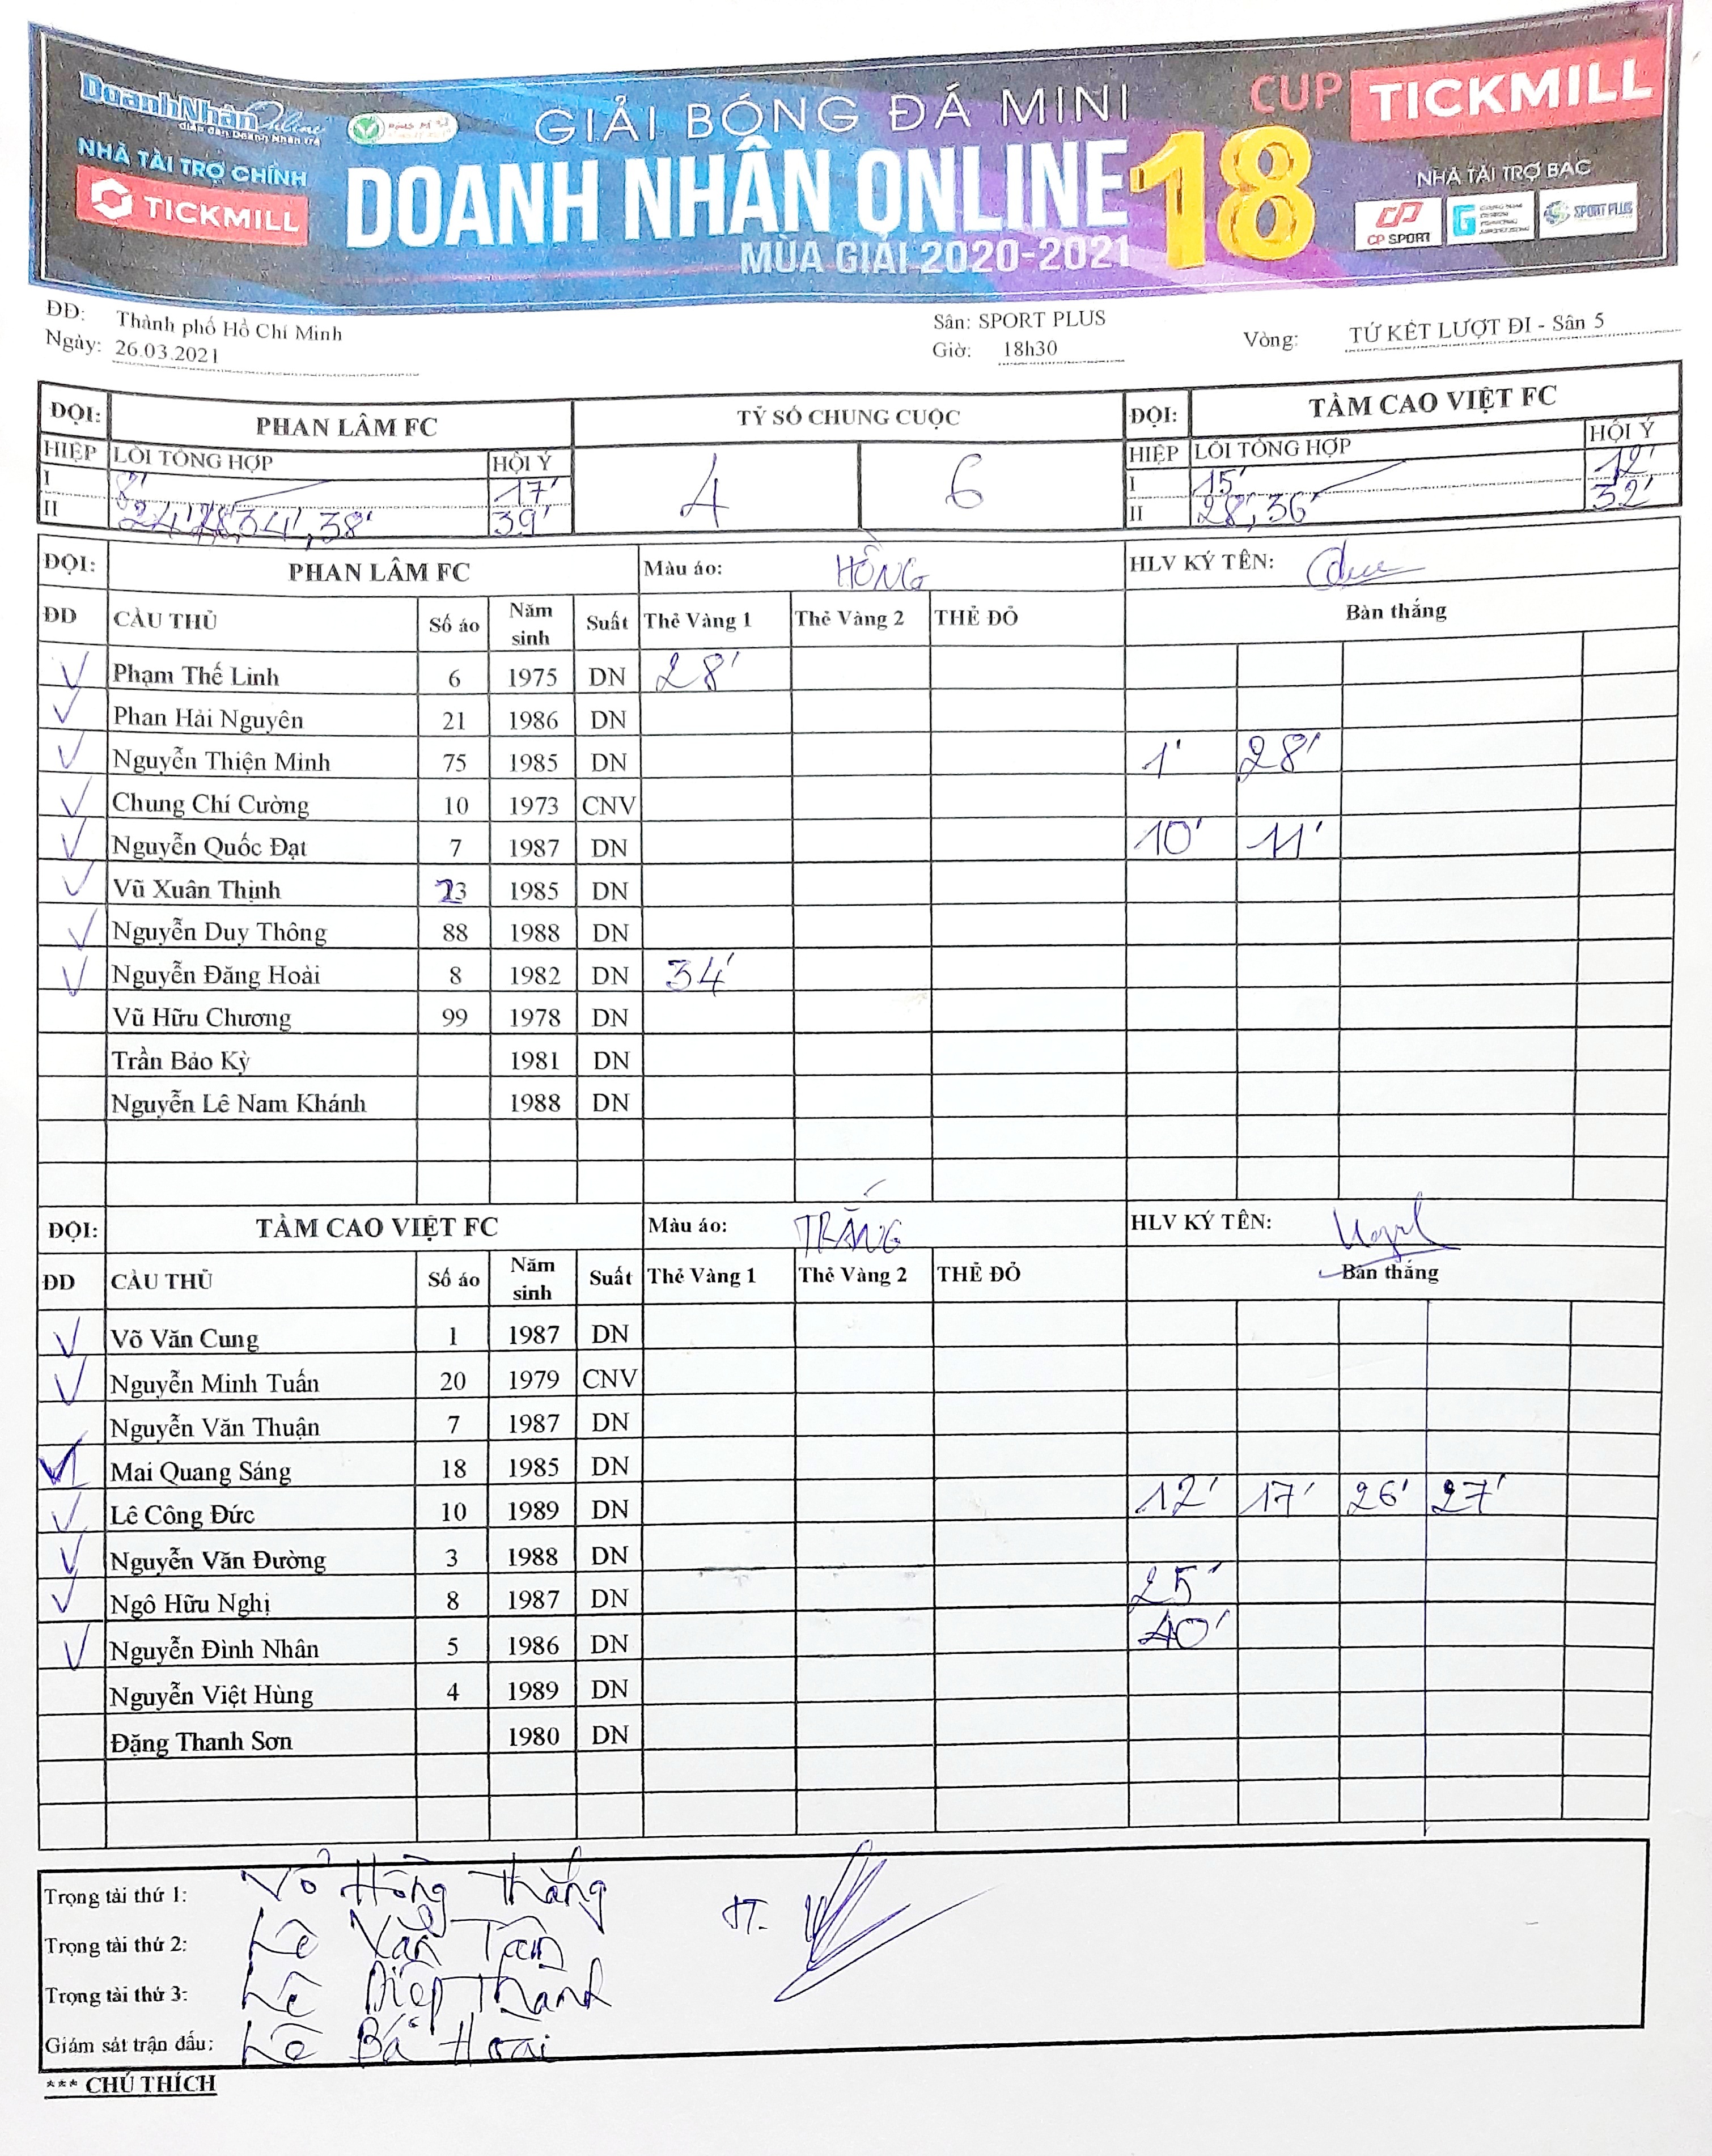 DoanhNhânOnline
NHÀ TÀI TRỢ CHÍNH
TICKMILL
GIẢI BÓNG ĐÁ MINI
DOANH NHÂN ONLINE 18
MÙA GIẢI 2020-2021
CUP TICKMILL
NHÀ TÀI TRỢ BẠC
CP SPORT
SPORT PLUS
ĐĐ: Thành phố Hồ Chí Minh Sân: SPORT PLUS
Ngày: 26.03.2021 Giờ: 18h30 Vòng: TỨ KẾT LƯỢT ĐI - Sân 5
ĐỘI: PHAN LÂM FC TỶ SỐ CHUNG CUỘC ĐỘI: TẦM CAO VIỆT FC
HIỆP LỖI TỔNG HỢP HỘI Ý 4 6 HIỆP LỖI TỔNG HỢP HỘI Ý
I 8' 17' I 15' 12'
II 24', 28', 34', 38' 39' II 28', 36' 32'
ĐỘI: PHAN LÂM FC Màu áo: HỒNG HLV KÝ TÊN:
ĐD CẦU THỦ Số áo Năm sinh Suất Thẻ Vàng 1 Thẻ Vàng 2 THẺ ĐỎ Bàn thắng
Phạm Thế Linh 6 1975 DN 28'
Phan Hải Nguyên 21 1986 DN
Nguyễn Thiện Minh 75 1985 DN 1' 28'
Chung Chí Cường 10 1973 CNV
Nguyễn Quốc Đạt 7 1987 DN 10' 11'
Vũ Xuân Thịnh 1985 DN
Nguyễn Duy Thông 88 1988 DN
Nguyễn Đăng Hoài 8 1982 DN 34'
Vũ Hữu Chương 99 1978 DN
Trần Bảo Kỳ 1981 DN
Nguyễn Lê Nam Khánh 1988 DN
ĐỘI: TẦM CAO VIỆT FC Màu áo: TRẮNG HLV KÝ TÊN:
ĐD CẦU THỦ Số áo Năm sinh Suất Thẻ Vàng 1 Thẻ Vàng 2 THẺ ĐỎ Bàn thắng
Võ Văn Cung 1 1987 DN
Nguyễn Minh Tuấn 20 1979 CNV
Nguyễn Văn Thuận 7 1987 DN
Mai Quang Sáng 18 1985 DN
Lê Công Đức 10 1989 DN 12' 17' 26' 27'
Nguyễn Văn Đường 3 1988 DN
Ngô Hữu Nghị 8 1987 DN 25'
Nguyễn Đình Nhân 5 1986 DN 40'
Nguyễn Việt Hùng 4 1989 DN
Đặng Thanh Sơn 1980 DN
Trọng tài thứ 1: Võ Hồng Thắng
Trọng tài thứ 2: Lê Văn Tân
Trọng tài thứ 3: Lê Diệp Thành
Giám sát trận đấu: Lê Bá Hoài
*** CHÚ THÍCH